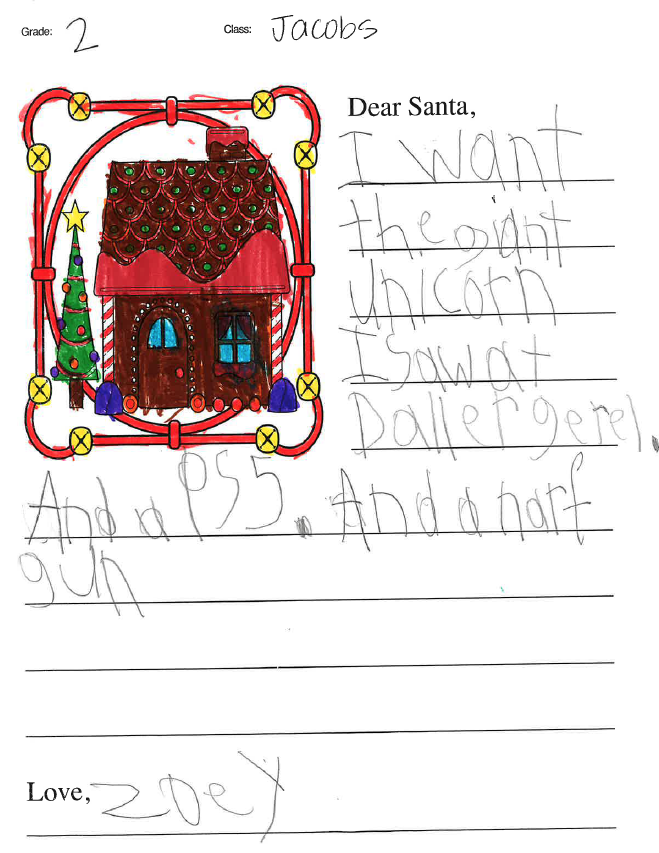 Grade: 2 Class: Jacobs
Dear Santa,
I want
the giant
unicorn
I saw at
Dallergerel.
And a PS5. And a narf
gun
Love, Zoey